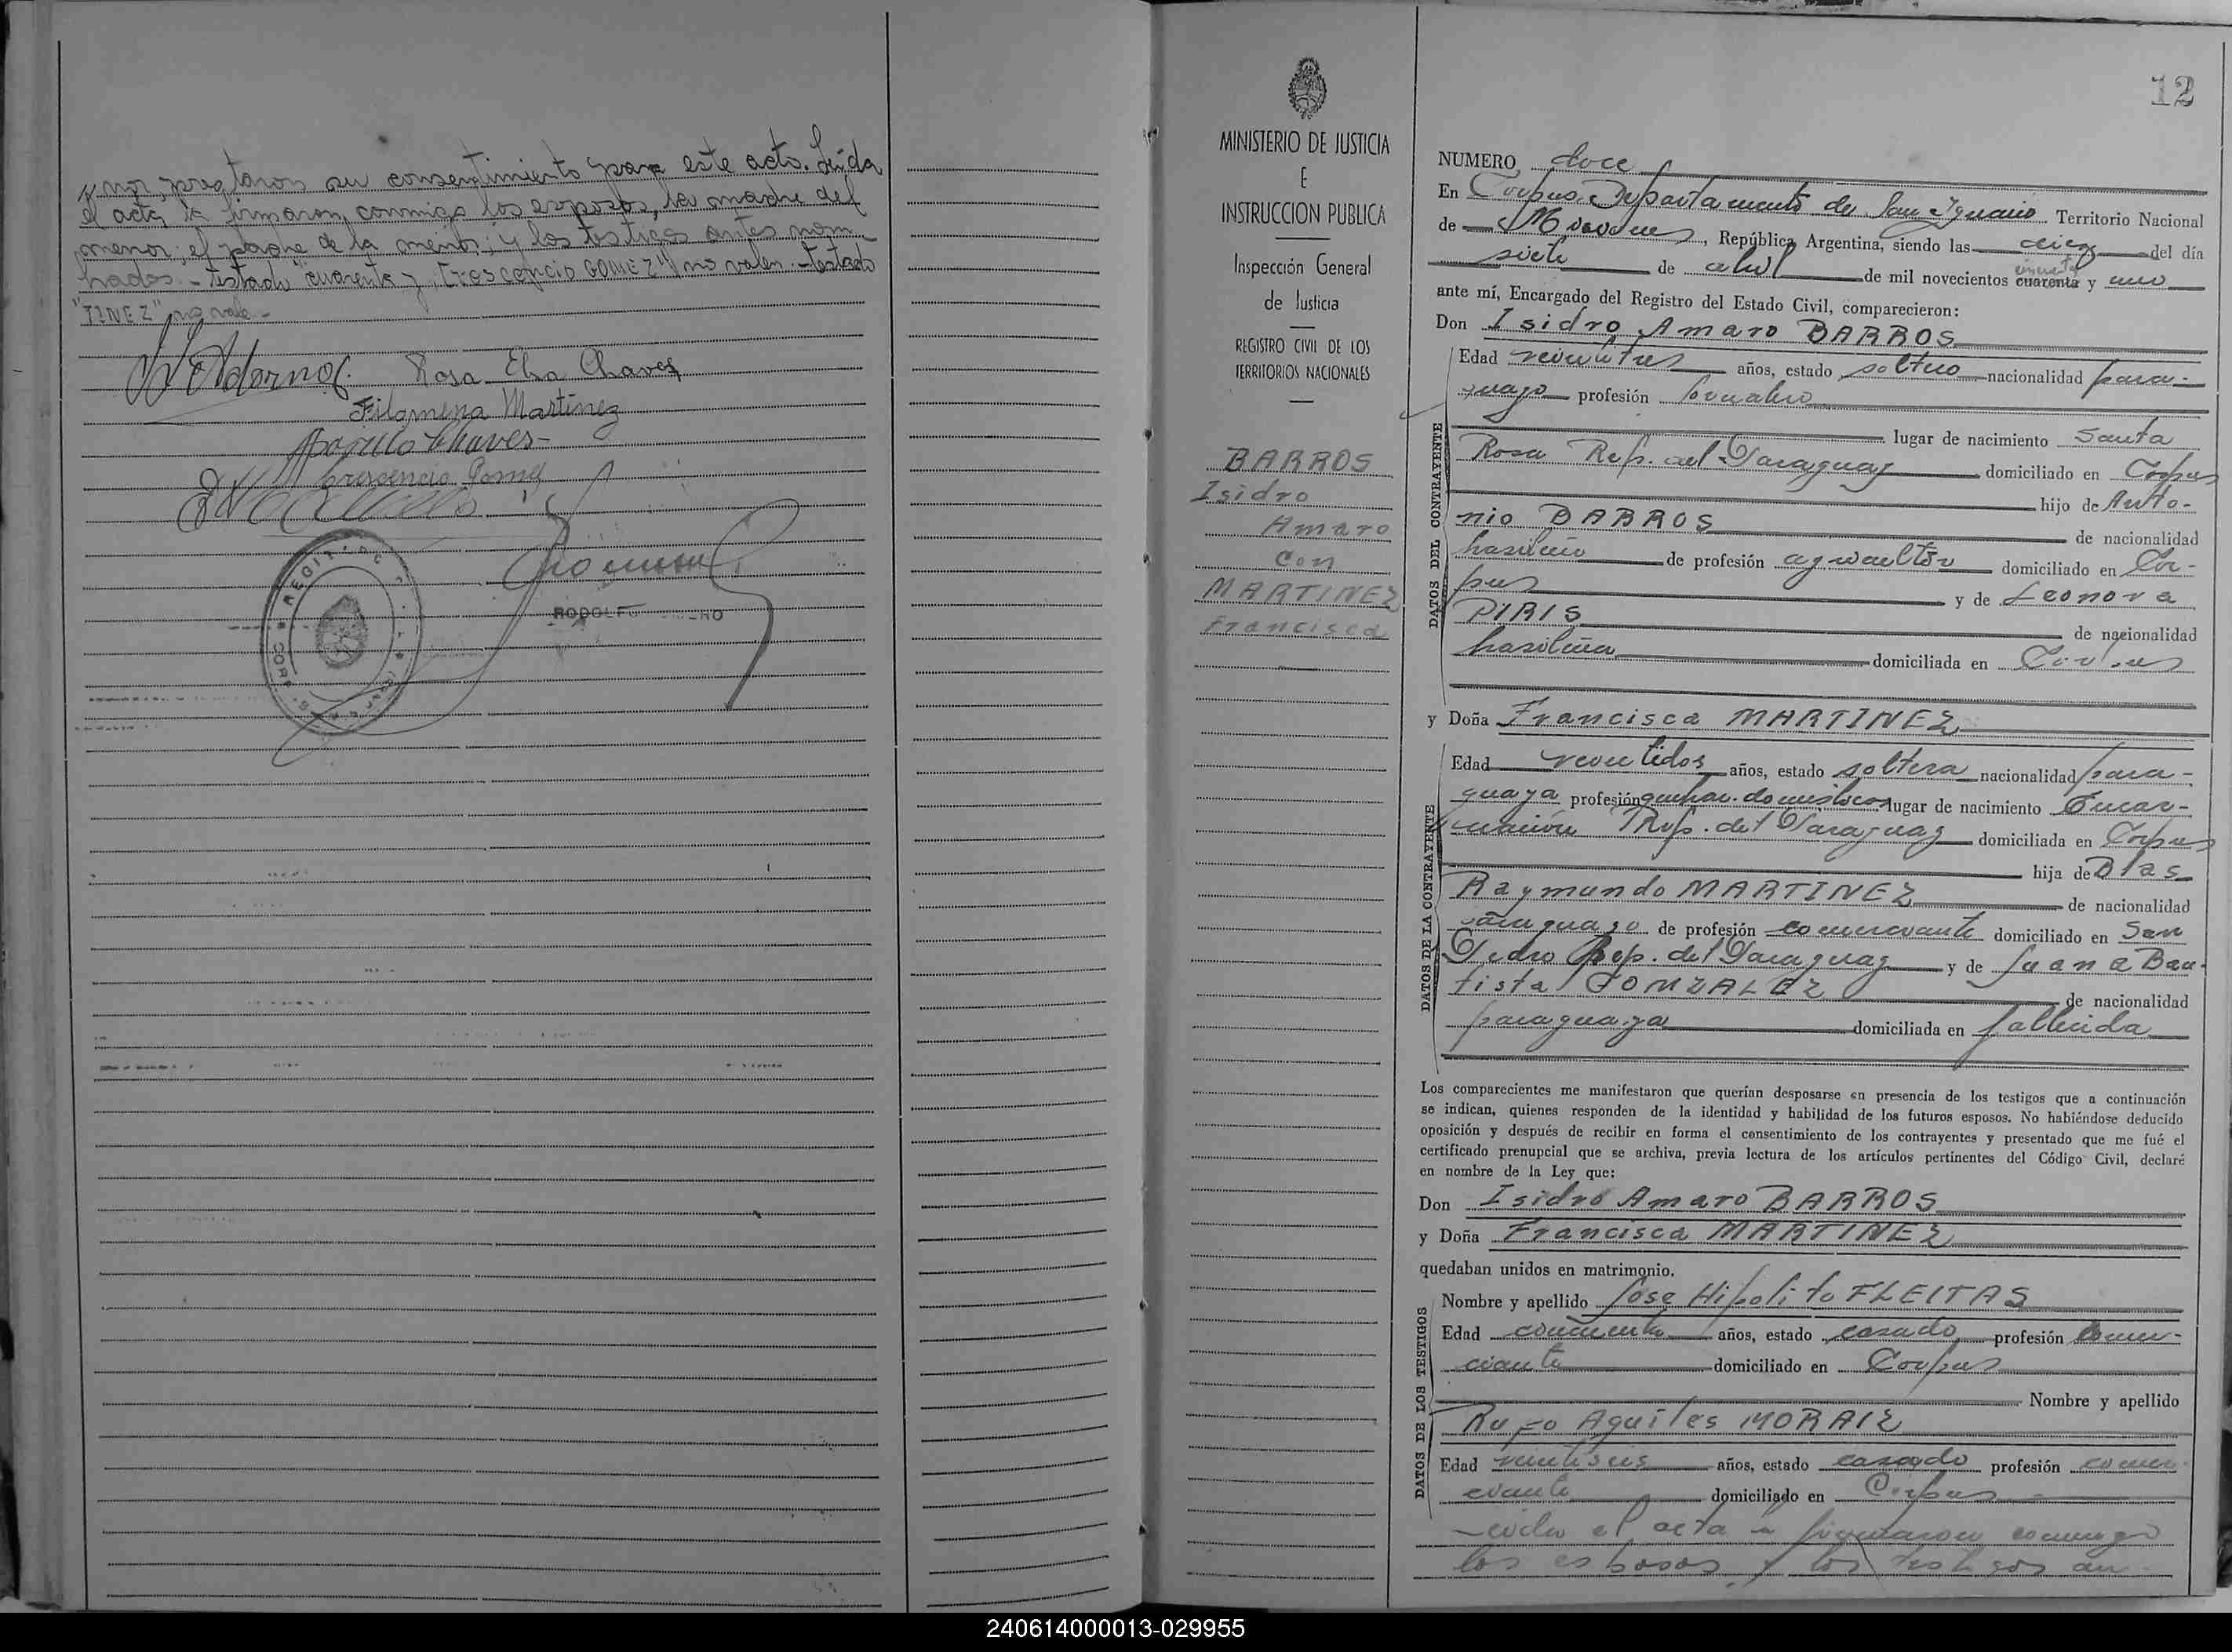 nor, prestaron su consentimiento para este acto. Leída
el acta, la firmaron, conmigo los esposos, la madre del
menor, el padre de la menor; y los testigos antes nom-
brados. - Testado "cuarenta y, Croscencio GOMEZ" no valen. - Testado
"TINEZ" no vale -
Rosa Elsa Chaves
Filomena Martínez
Chaves
Croscencio Gomez
RODOLFO
12
MINISTERIO DE JUSTICIA
E
INSTRUCCION PUBLICA
Inspección General
de Justicia
REGISTRO CIVIL DE LOS
TERRITORIOS NACIONALES
BARROS
Isidro
Amaro
con
MARTINEZ
Francisca
NUMERO doce
En Corpus Departamento de San Ignacio Territorio Nacional
de Misiones, República Argentina, siendo las diez del día
siete de abril de mil novecientos cuarenta cincuenta y uno
ante mí, Encargado del Registro del Estado Civil, comparecieron:
Don Isidro Amaro BARROS
DATOS DEL CONTRAYENTE
Edad veintitres años, estado soltero nacionalidad para-
guayo profesión jornalero
lugar de nacimiento Santa
Rosa Rep. del Paraguay domiciliado en Corpus
hijo de Anto-
nio BARROS de nacionalidad
brasileño de profesión agricultor domiciliado en Cor-
pus y de Leonora
PIRIS de nacionalidad
brasileña domiciliada en Corpus
y Doña Francisca MARTINEZ
DATOS DE LA CONTRAYENTE
Edad veintidos años, estado soltera nacionalidad para-
guaya profesión quehac. domesticos lugar de nacimiento Encar-
nación Rep. del Paraguay domiciliada en Corpus
hija de Blas
Raymundo MARTINEZ de nacionalidad
paraguayo de profesión comerciante domiciliado en San
Pedro Rep. del Paraguay y de Juana Bau-
tista GONZALEZ de nacionalidad
paraguaya domiciliada en fallecida
Los comparecientes me manifestaron que querían desposarse en presencia de los testigos que a continuación
se indican, quienes responden de la identidad y habilidad de los futuros esposos. No habiéndose deducido
oposición y después de recibir en forma el consentimiento de los contrayentes y presentado que me fué el
certificado prenupcial que se archiva, previa lectura de los artículos pertinentes del Código Civil, declaré
en nombre de la Ley que:
Don Isidro Amaro BARROS
y Doña Francisca MARTINEZ
quedaban unidos en matrimonio.
DATOS DE LOS TESTIGOS
Nombre y apellido Jose Hipolito FLEITAS
Edad cincuenta años, estado casado profesión comer-
ciante domiciliado en Corpus
Nombre y apellido
Rufo Aquiles MORAIZ
Edad veintiseis años, estado casado profesión comer-
ciante domiciliado en Corpus
Leida el acta la firmaron conmigo
los esposos y los testigos an-
240614000013-029955